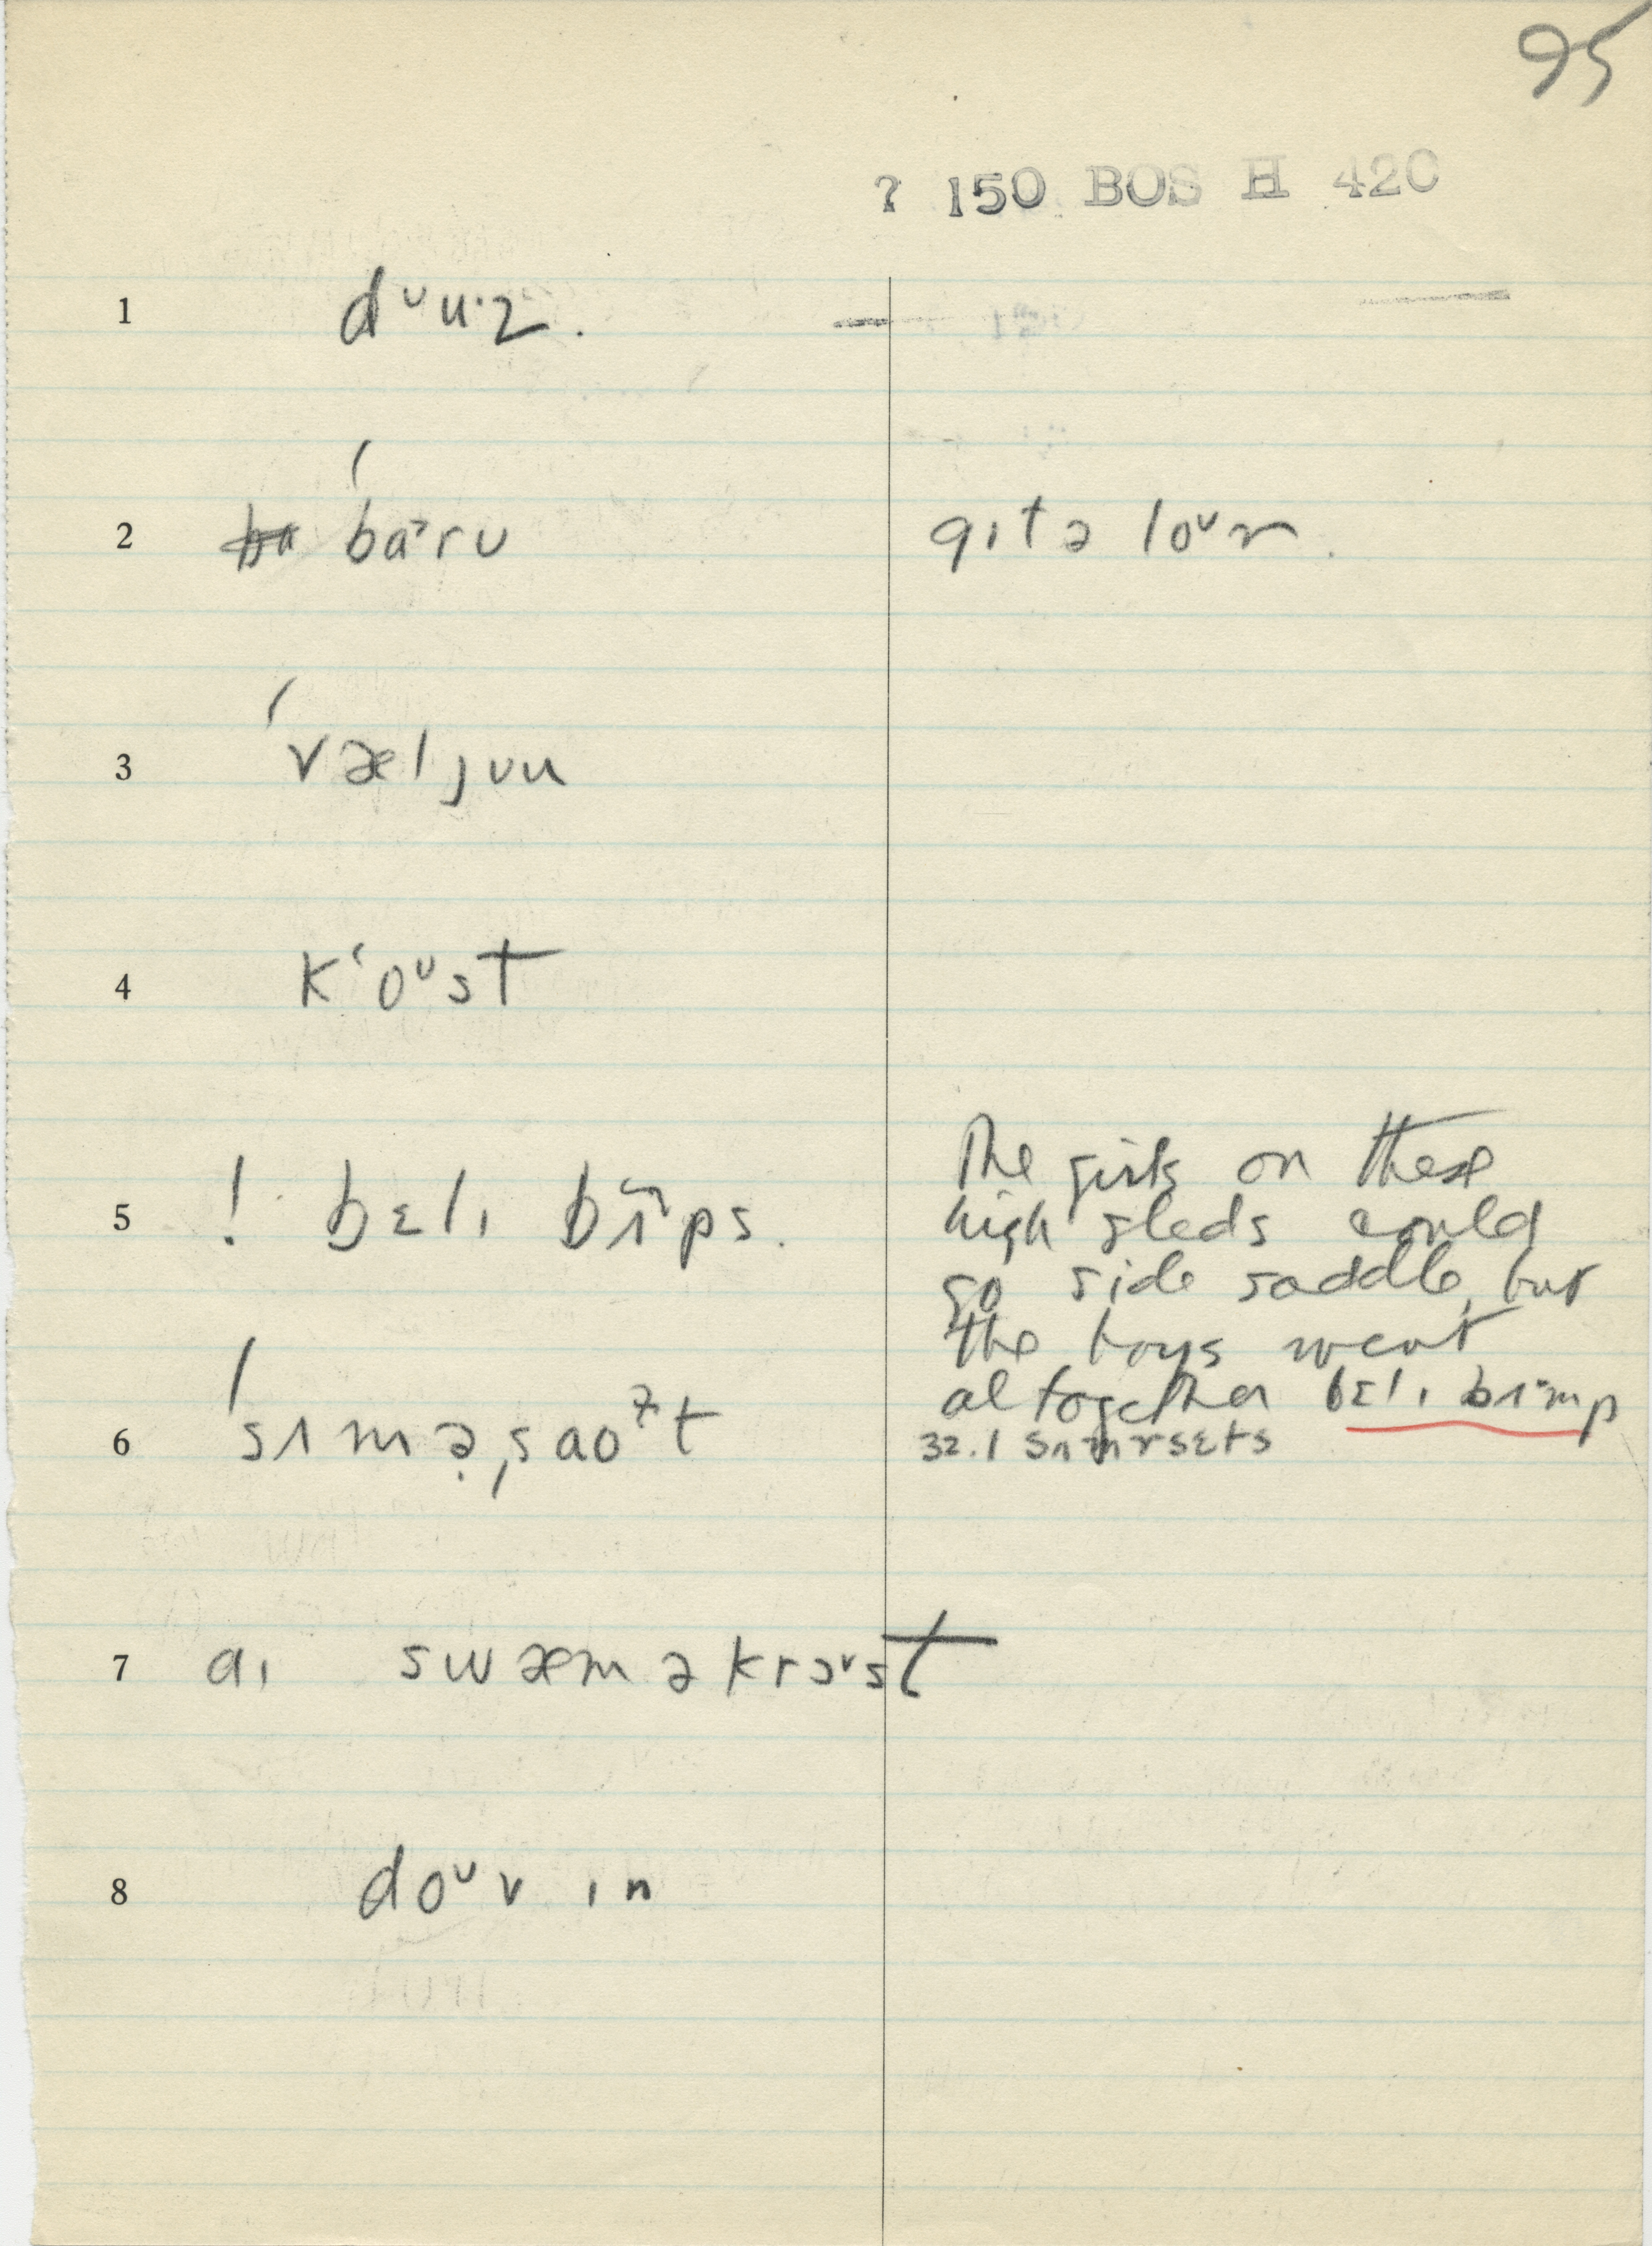 95
? 150 BOS H 42C
1 dᴜu·z.
2 ba ˈbaɔrᴜ gɪt ə loᴜn.
3 ˈvæljᴜu
4 kʻoᴜst
5 ! bɛlɪ bʌps.
The girls on these
high sleds could
go side saddle, but
the boys went
altogether bɛlɪ bʌmp
6 ˈsʌməˌsaot
32.1 sʌmrsɛts
7 aɪ swæm əkrɔst
8 doᴜv ɪn